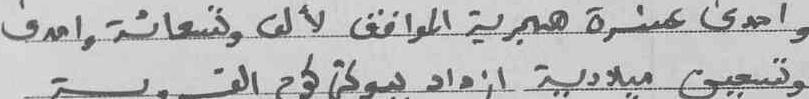 واحدى عشرة هجرية الموافق لألف وتسعمائة واحدى
وتسعين ميلادية ازداد